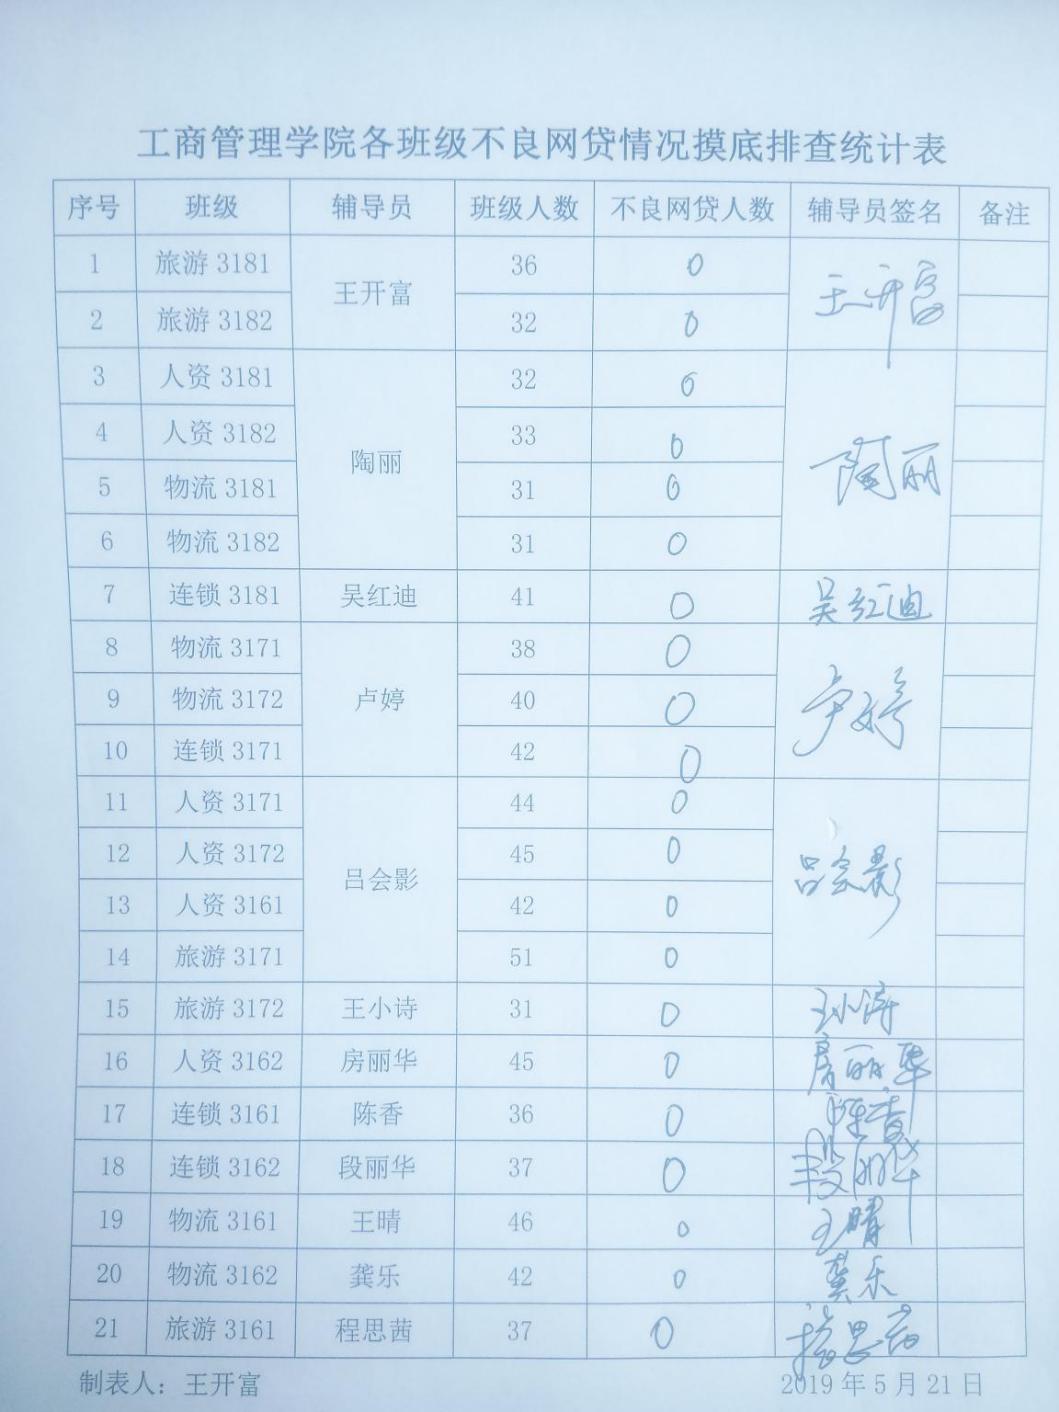 工商管理学院各班级不良网贷情况摸底排查统计表
序号 班级 辅导员 班级人数 不良网贷人数 辅导员签名 备注
1 旅游 3181 王开富 36 0 王开富
2 旅游 3182 32 0
3 人资 3181 陶丽 32 0 陶丽
4 人资 3182 33 0
5 物流 3181 31 0
6 物流 3182 31 0
7 连锁 3181 吴红迪 41 0 吴红迪
8 物流 3171 卢婷 38 0 卢婷
9 物流 3172 40 0
10 连锁 3171 42 0
11 人资 3171 吕会影 44 0 吕会影
12 人资 3172 45 0
13 人资 3161 42 0
14 旅游 3171 51 0
15 旅游 3172 王小诗 31 0 王小诗
16 人资 3162 房丽华 45 0 房丽华
17 连锁 3161 陈香 36 0 陈香
18 连锁 3162 段丽华 37 0 段丽华
19 物流 3161 王晴 46 0 王晴
20 物流 3162 龚乐 42 0 龚乐
21 旅游 3161 程思茜 37 0 程思茜
制表人：王开富 2019 年 5 月 21 日